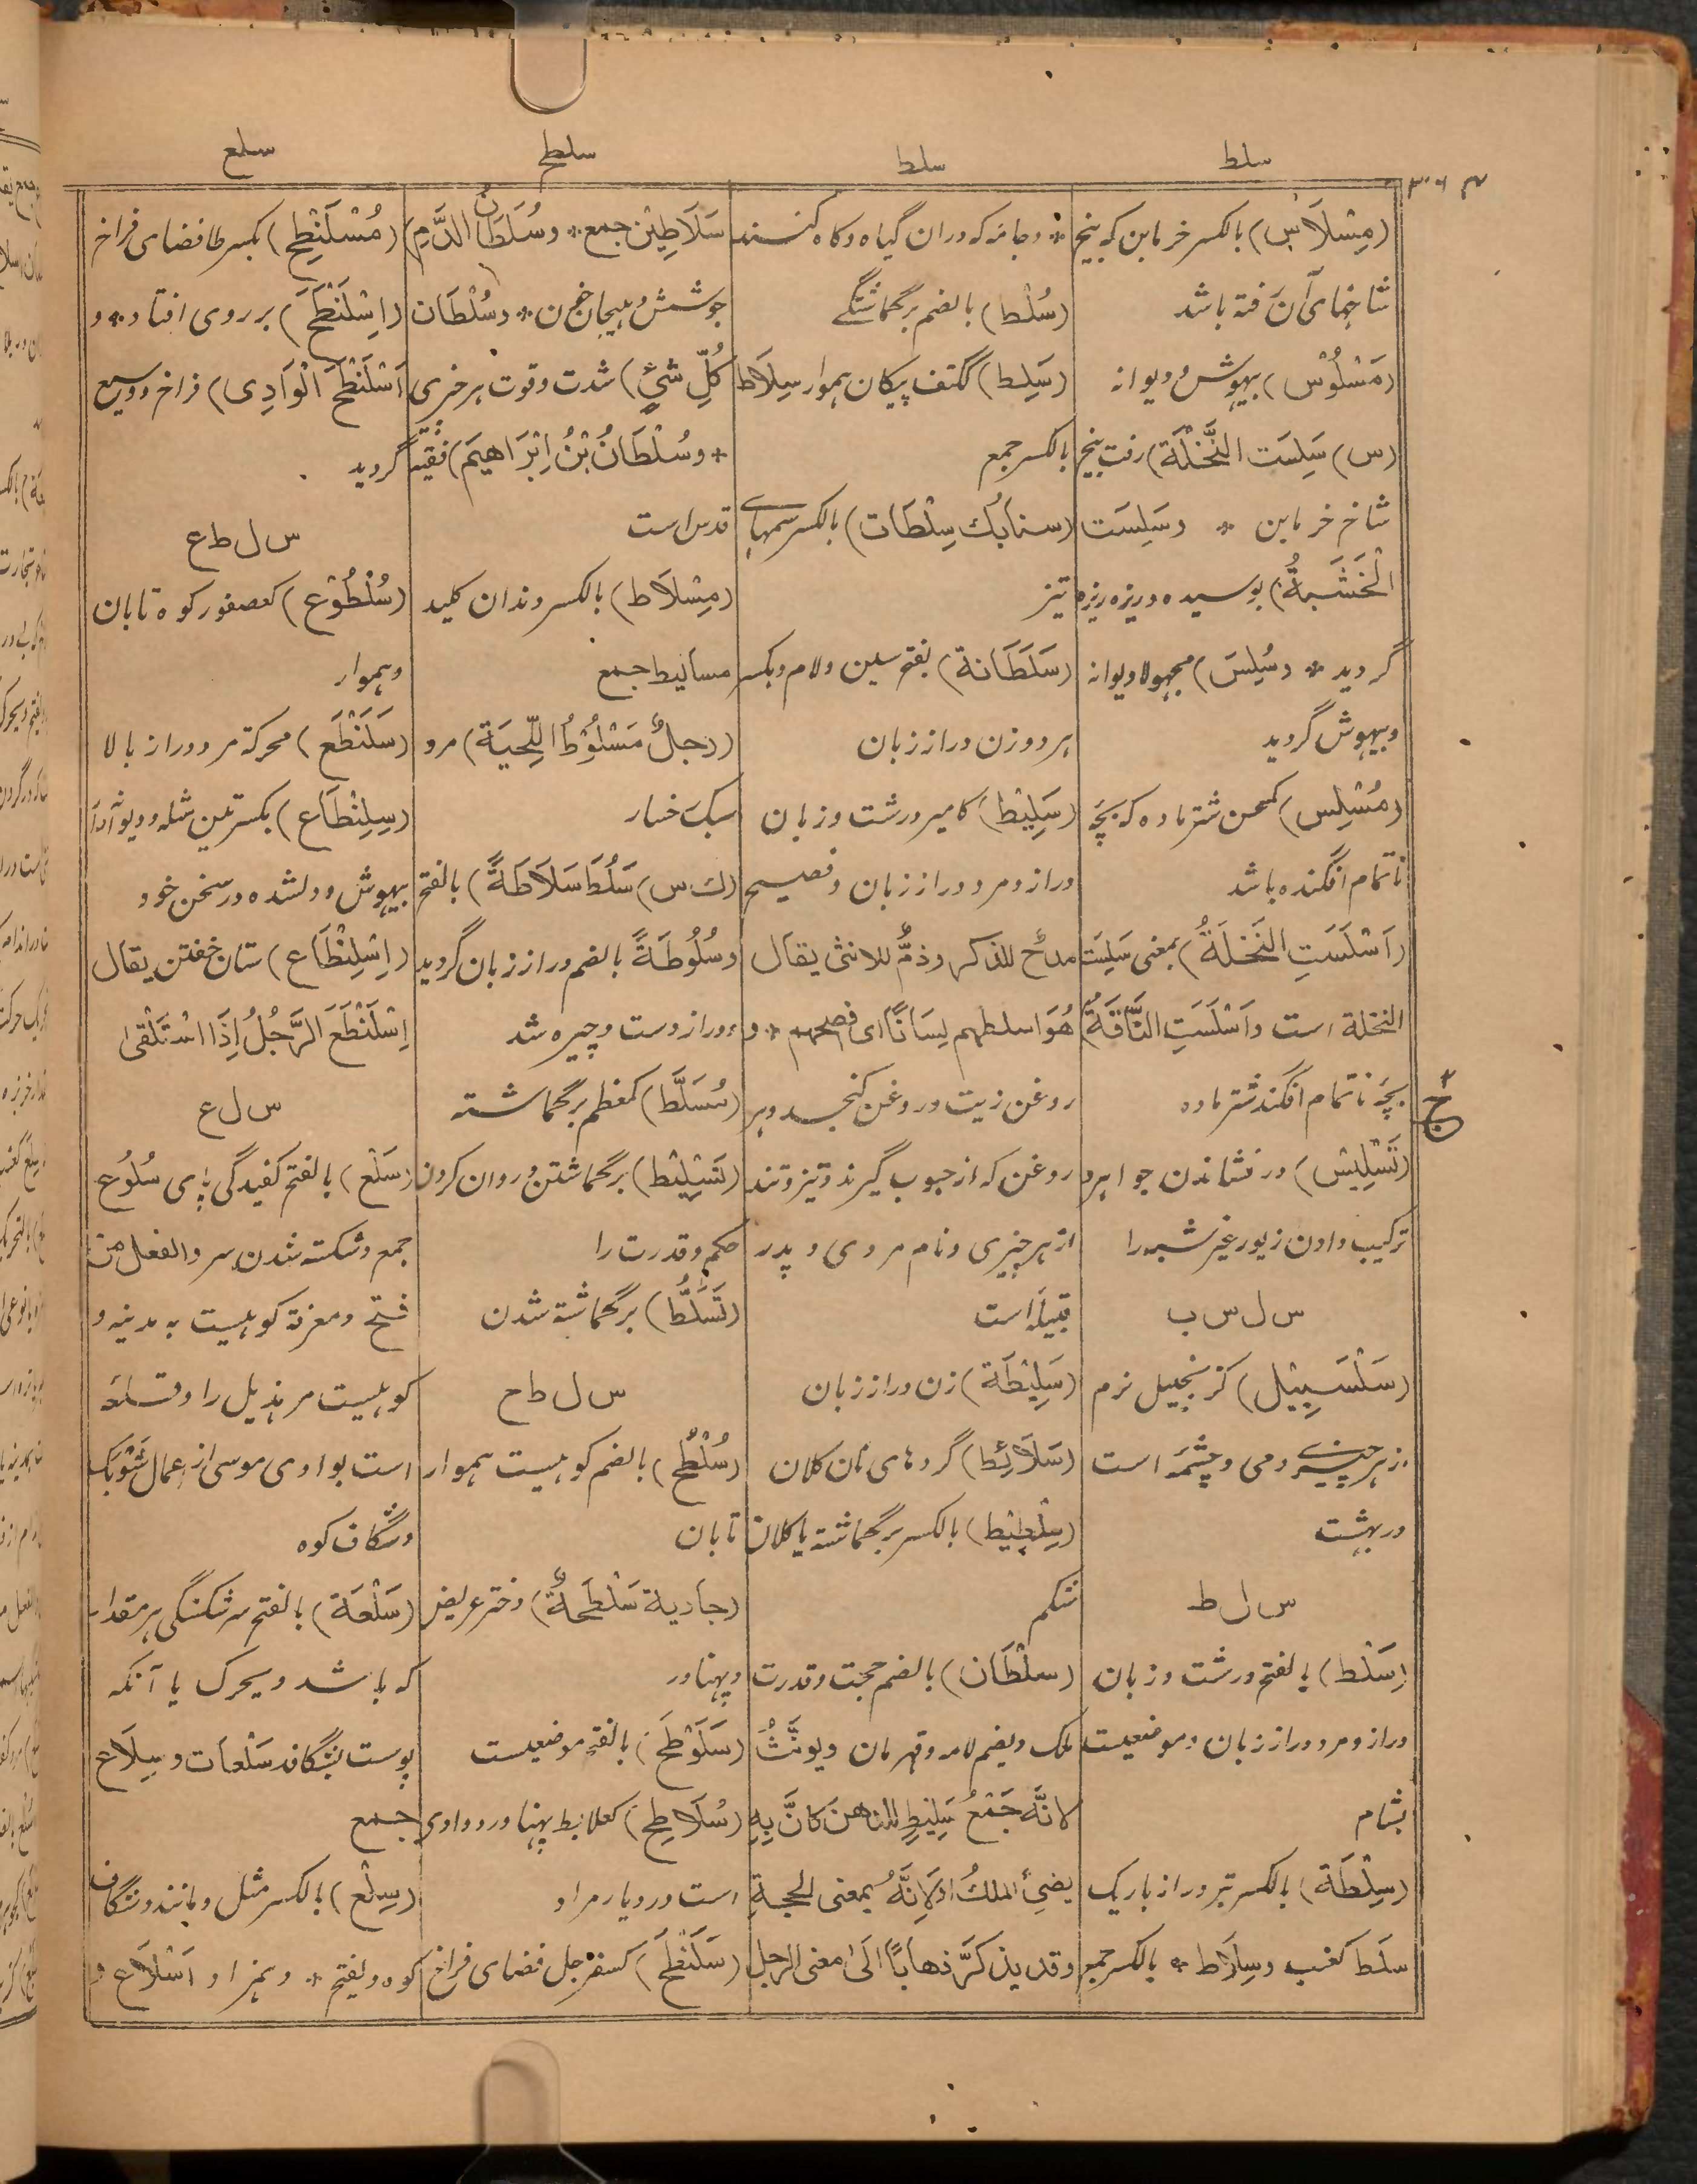 سلط
سلط
سلطح
سلع
(مِسْلَاس) بالکسر خرمابن که بیخ
شاخهای آن رفته باشد
(مَسْلُوْس) بیهوش و دیوانه
(س) سَلِسَت النَّخْلَة) رفت بیخ
شاخ خرمابن * وسَلِسَت
الْخَشَبَةُ) بوسیده و ریزه ریزه
گردید * وسُلِسَ) مجهولا دیوانه
وبیهوش گردید
(مُسْلِس) کمحسن شتر ماده که بچّه
ناتمام افکنده باشد
(اَسْلَسَتِ النَخلَةُ) بمعنی سَلِسَت
النخلة است واَسْلَسَتِ النَّاقَةُ)
بچّه ناتمام افکند شتر ماده
(تَسْلِیْس) درنشاندن جواهر و
ترکیب دادن زیور غیر شبه را
س ل س ب
(سَلْسَبِیْل) کزنجبیل نرم
ازهر چیزی ومی وچشمه است
دربهشت
س ل ط
(سَلْط) بالفتح درشت وزبان
دراز ومرد دراز زبان وموضعیست
بشام
(سِلْطَة) بالکسر تیر دراز باریک
سلَط کعنب وسِلَاط * بالکسر جمع
* وجامه که دران گیاه وکاه کنند
(سُلْط) بالضم برگماشتگے
(سَلِط) ککتف پیکان هموار سِلَاط
بالکسر جمع
(سنابُك سِلْطَات) بالکسر سمهاے
تیز
(سَلَطَانة) بفتح سین ولام وبکسر
هردو زن دراز زبان
(سَلِیْط) کامیر درشت وزبان
دراز ومرد دراز زبان وفصیح
مدحٌ للذکر وذمٌّ للانثی یقال
هُوَ اسلطهم لِسَانًا ای فصحهم * و
روغن زیت وروغن کنجد وهر
روغن که از حبوب گیرند وتیز وتند
از هرچیزی ونام مردی وپدر
قبیلۀ است
(سَلِیْطَة) زن دراز زبان
(سَلَائِط) گردهای نان کلان
(سِلْطِیْط) بالکسر برگماشته یا کلان
شکم
(سلْطَان) بالضم حجت وقدرت
ملک ویضم لامه وقهرمان ویونَّثُ
لانَّه جَمْعُ سَلِیْطٍ للدهن کَانَّ بِهِ
یضیئُ الملكُ اولِاَنَّهُ بمعنی الحجةِ
وقد یذکرَّ ذهابًا الَی معنی الرجل
سَلَاطِیْن جمع * وسُلْطَانُ الدَّمِ)
جوشش وهیجان خون * وسُلْطَان
كُلِّ شئٍ) شدت وقوت هر چیزی
* وسُلْطَانُ بْنُ اِبْرَاهِیمَ) فقیہ
قدس است
(مِسْلَاط) بالکسر دندان کلید
مسالیط جمع
(رجلٌ مَسْلُوْطُ اللِّحیَة) مرد
سبک خسار
(ك س) سَلُطَ سَلَاطَةً) بالفتح
وسُلُوطَةً بالضم دراز زبان گردید
ودراز دست وچیره شد
(مُسَلَّط) کمعظم برگماشته
(تَسْلِیْط) برگماشتن وروان کردن
حکم وقدرت را
(تَسَلُّط) برگماشته شدن
س ل ط ح
(سُلْطُح) بالضم کوهیست هموار
تابان
(جاریة سَلْطَحَةٌ) دختر عریض
وپهناور
(سَلَوْطَح) بالفتح موضعیست
(سُلَاطِح) کعلابط پهناور ووادی
است دردیار مراد
(سَلَنْطَح) کسفرجل فضای فراخ
(مُسْلَنْطِح) بکسر طا فضای فراخ
(اِسْلَنْطَحَ) بر روی افتاد * و
اَسْلَنْطَحَ الْوَادِی) فراخ ووسیع
گردید
س ل ط ع
(سُلْطُوْع) کعصفور کوه تابان
وهموار
(سَلَنْطَع) محرکة مرد دراز بالا
(سِلِنْطَاع) بکسرتین مثله ودیوانه
بیهوش ودلشده در سخن خود
(اِسْلِنْطَاع) ستان خفتن یقال
اِسْلَنْطَعَ الرَّجُلُ اِذَا اسْتَلْقیٰ
س ل ع
(سَلْع) بالفتح کفیدگی پای سُلُوع
جمع وشکسته شدن سر والفعل من
فتح ومعرفة کوهیست به مدینه و
کوهیست مر هذیل را وقلعۀ
است بوادی موسی از اعمال شوبک
وشگاف کوه
(سَلْعَة) بالفتح سرشکستگی هرمقدار
که باشد ویحرک یا آنکه
پوست بشگافد سَلْعَات وسِلَاع
جمع
(سِلْع) بالکسر مثل ومانند وشگاف
کوه ویفتح * وهمزاد اَسْلَاع و